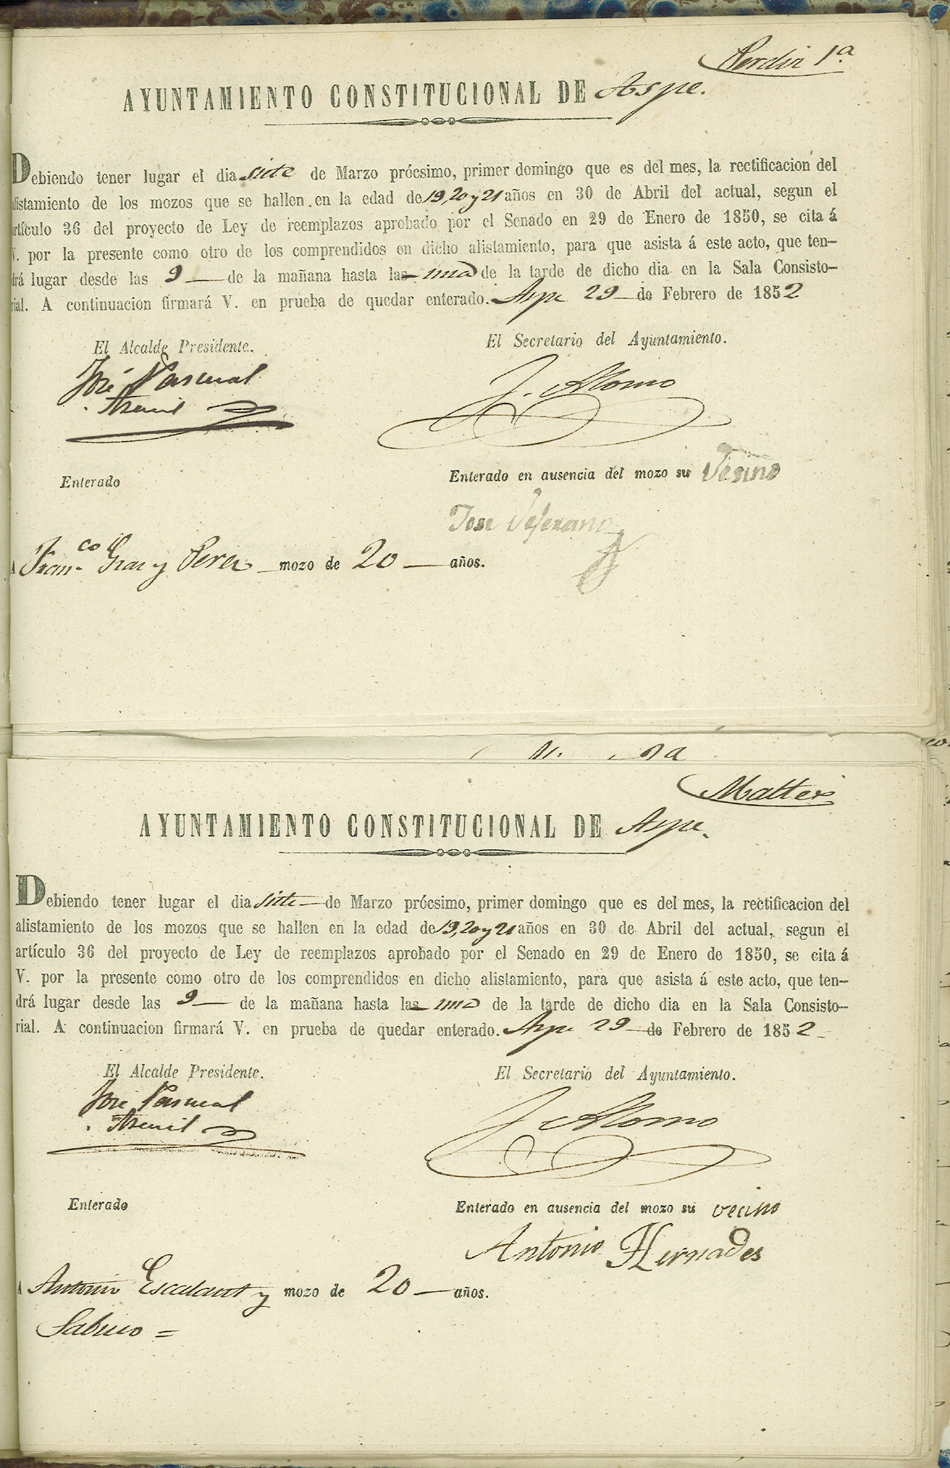 1ª
AYUNTAMIENTO CONSTITUCIONAL DE Aspe.
Debiendo tener lugar el dia siete de Marzo prócsimo, primer domingo que es del mes, la rectificacion del
alistamiento de los mozos que se hallen en la edad de 19, 20 y 21 años en 30 de Abril del actual, segun el
artículo 36 del proyecto de Ley de reemplazos aprobado por el Senado en 29 de Enero de 1850, se cita á
V. por la presente como otro de los comprendidos en dicho alistamiento, para que asista á este acto, que ten-
drá lugar desde las 9 de la mañana hasta la una de la tarde de dicho dia en la Sala Consisto-
rial. A continuacion firmará V. en prueba de quedar enterado. Aspe 29 de Febrero de 1852
El Alcalde Presidente. El Secretario del Ayuntamiento.
José Pascual J. Alonso
Enterado Enterado en ausencia del mozo su Vesino
Jose
A Fran.co y Perez mozo de 20 años.
AYUNTAMIENTO CONSTITUCIONAL DE Aspe.
Debiendo tener lugar el dia siete de Marzo prócsimo, primer domingo que es del mes, la rectificacion del
alistamiento de los mozos que se hallen en la edad de 19, 20 y 21 años en 30 de Abril del actual, segun el
artículo 36 del proyecto de Ley de reemplazos aprobado por el Senado en 29 de Enero de 1850, se cita á
V. por la presente como otro de los comprendidos en dicho alistamiento, para que asista á este acto, que ten-
drá lugar desde las 9 de la mañana hasta las una de la tarde de dicho dia en la Sala Consisto-
rial. A continuacion firmará V. en prueba de quedar enterado. Aspe 29 de Febrero de 1852
El Alcalde Presidente. El Secretario del Ayuntamiento.
José Pascual J. Alonso
Enterado Enterado en ausencia del mozo su vecino
Antonio Hernades
A Antonio Escalant y mozo de 20 años.
Sabuco =